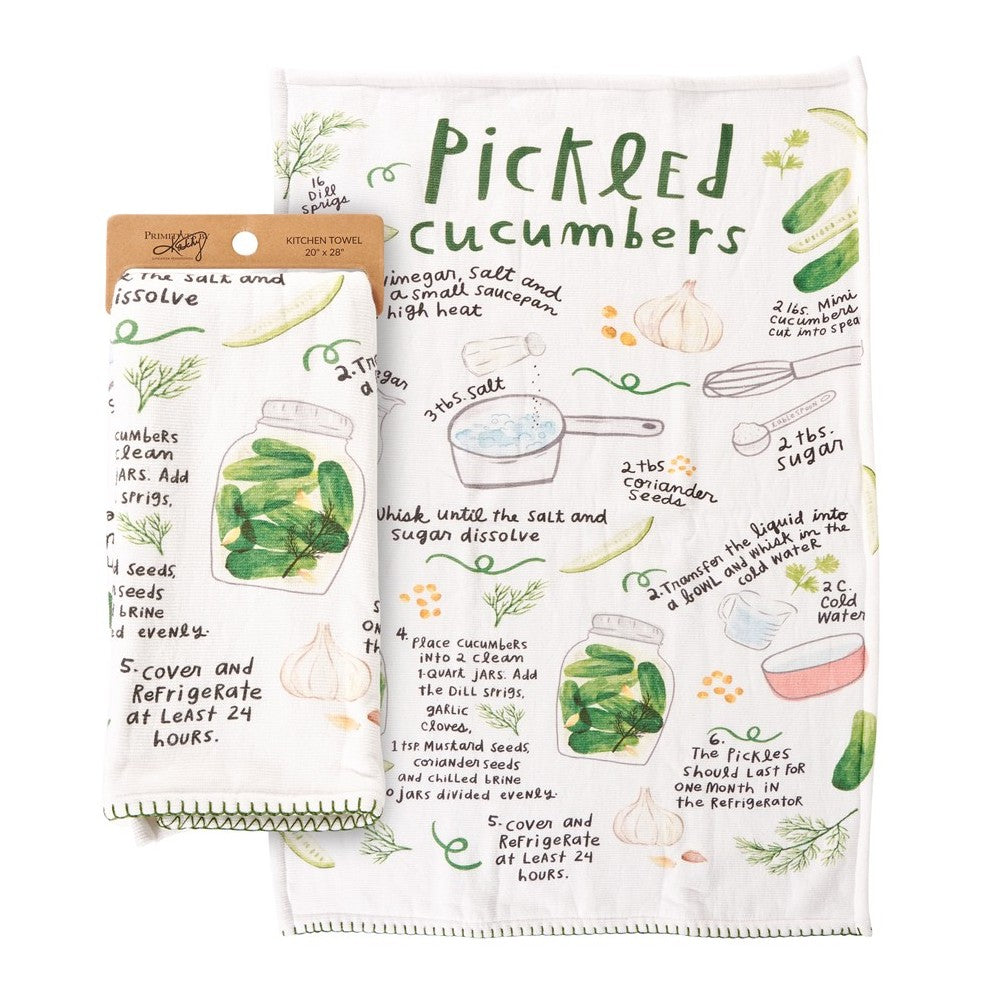 Pickled
cucumbers
16
Dill
sprigs
vinegar, salt and
a small saucepan
high heat
2 lbs. Mini
cucumbers
cut into spea
3 tbs. salt
tablespoon
2 tbs.
sugar
2 tbs
coriander
seeds
Whisk until the salt and
sugar dissolve
2. Transfer the liquid into
a bowl and whisk in the
cold water
2 C.
cold
water
4. Place cucumbers
into 2 clean
1-quart jars. Add
the dill sprigs,
garlic
cloves,
1 tsp. Mustard seeds,
coriander seeds
and chilled brine
o jars divided evenly.
5. Cover and
Refrigerate
at least 24
hours.
6.
The Pickles
should last for
one month in
the refrigerator
Primitives by
Kathy
KITCHEN TOWEL
20" x 28"
the salt and
issolve
2. Tra
a
gar
cumbers
clean
jars. Add
sprigs,
d seeds,
seeds
brine
ed evenly.
5. Cover and
Refrigerate
at least 24
hours.